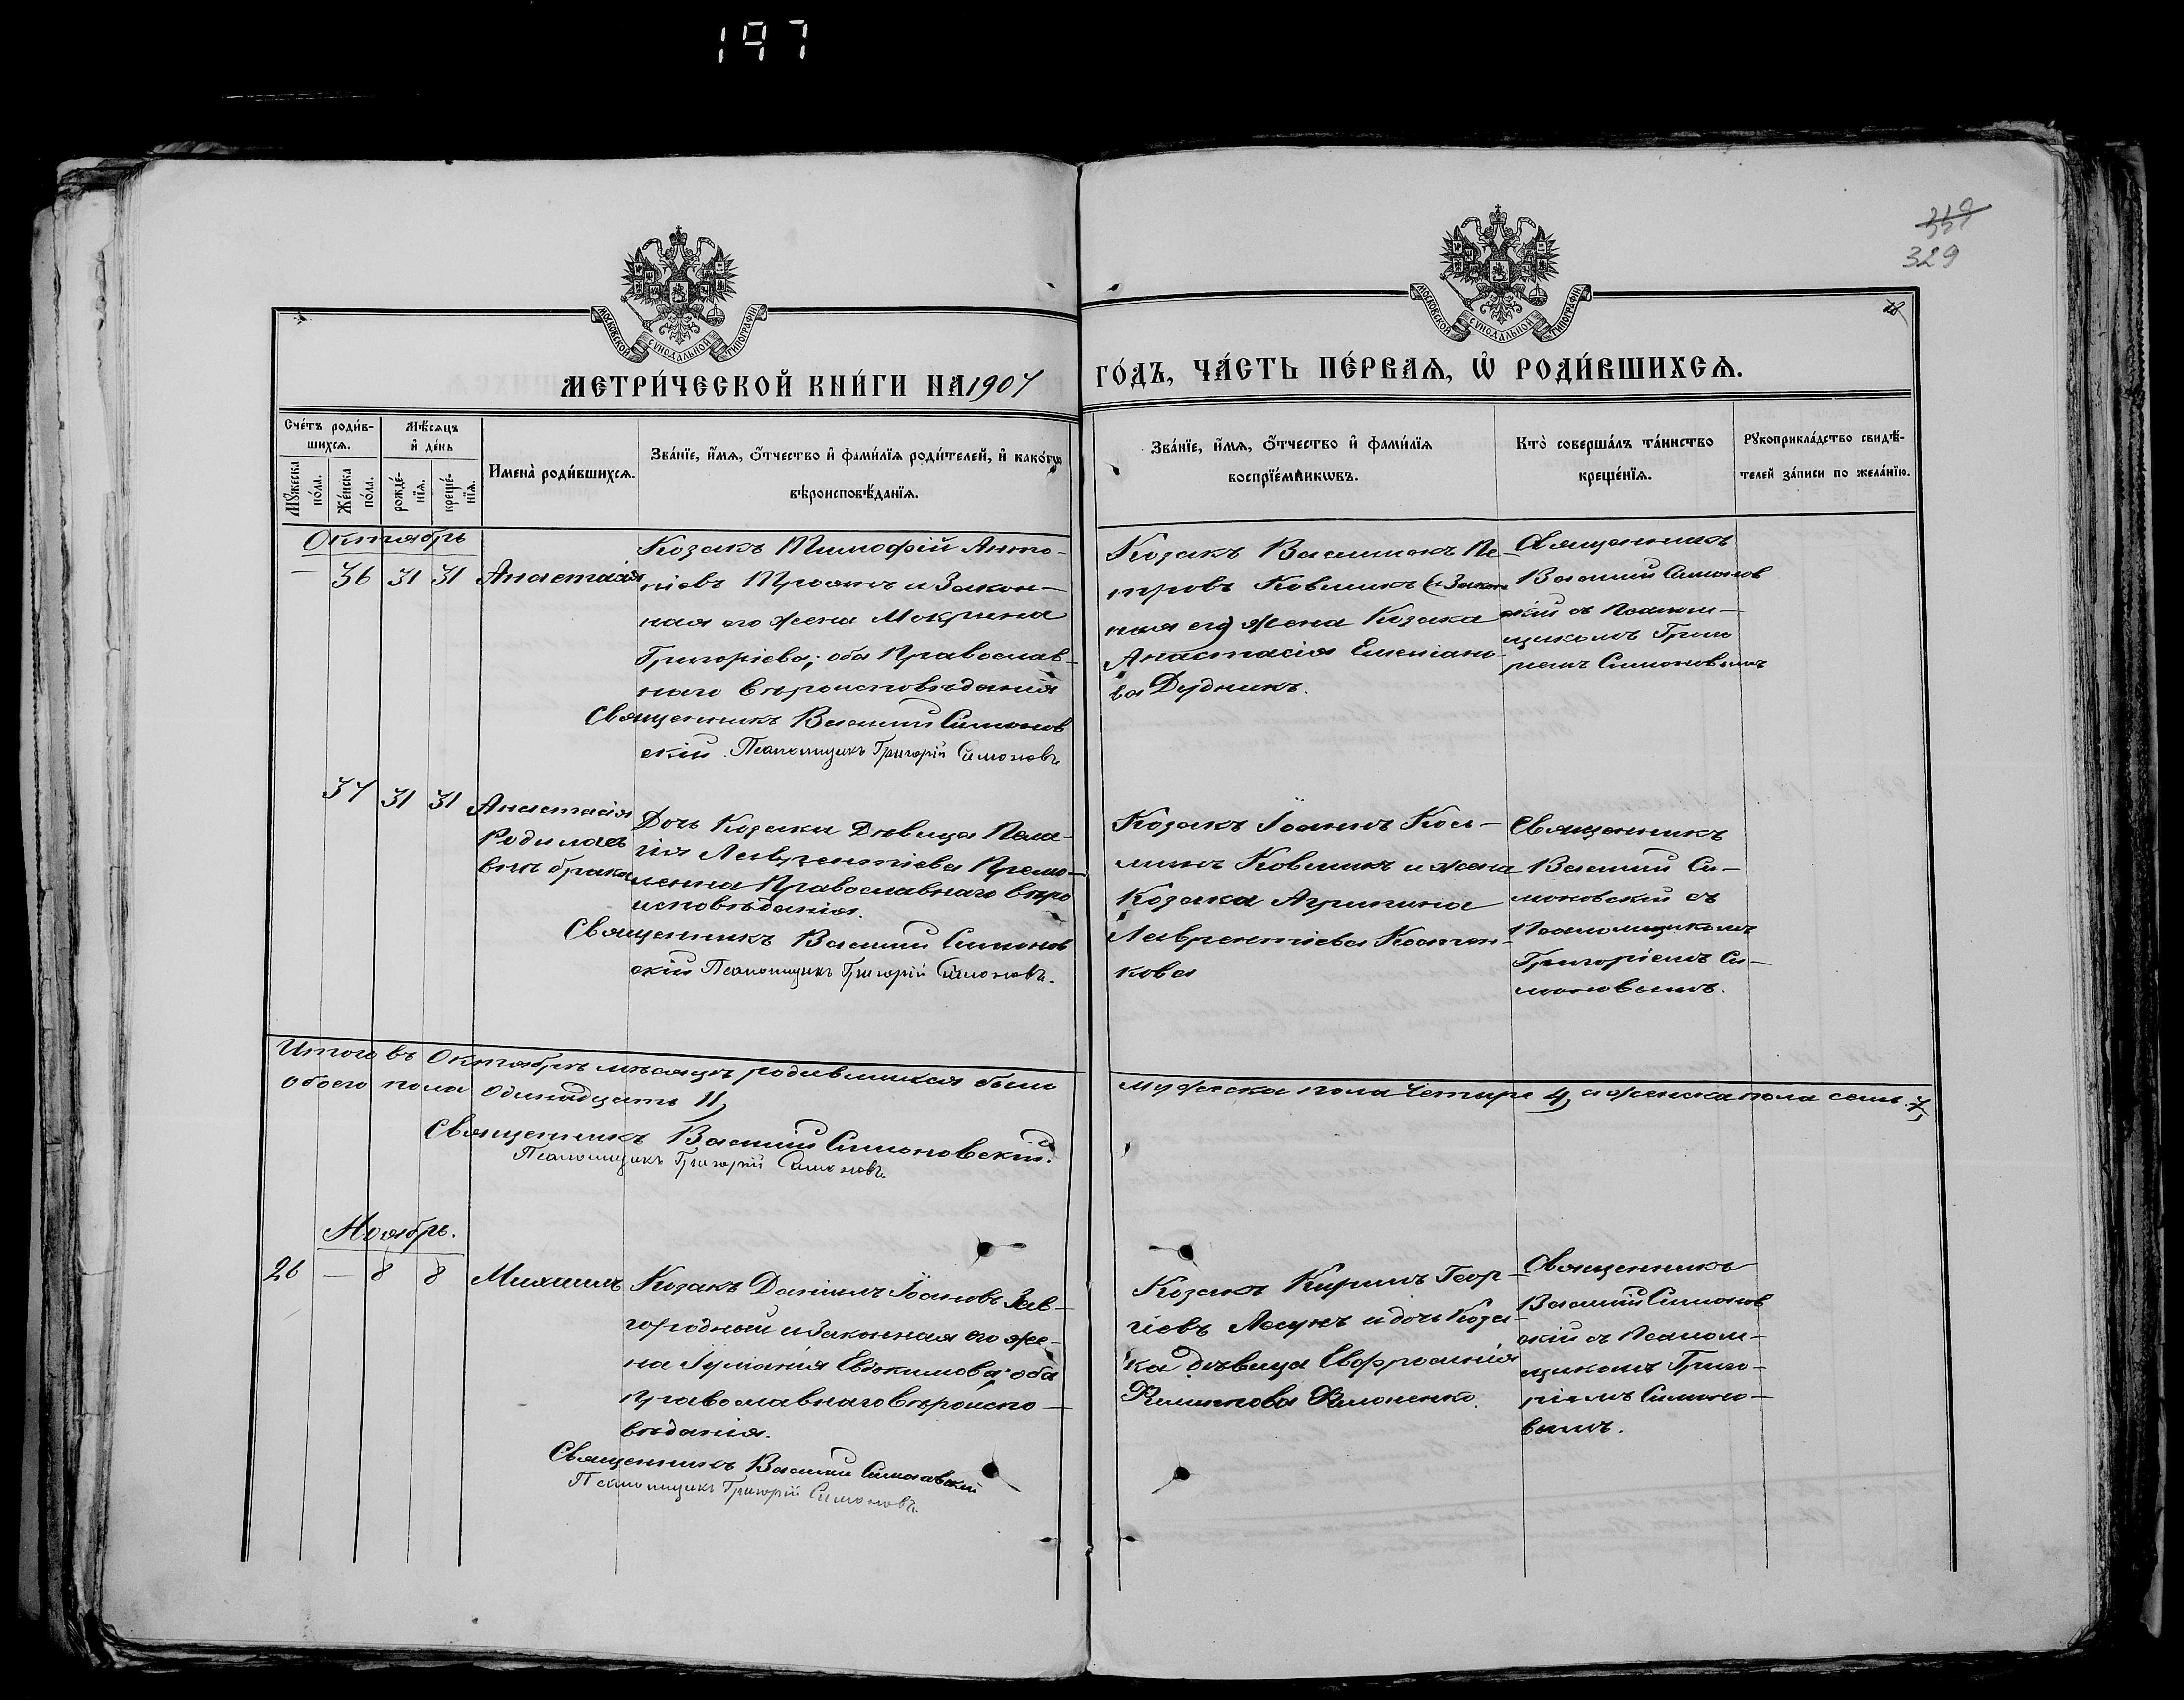 197
329
МОСКОВСКОЙ СѴНОДАЛЬНОЙ ТИПОГРАФІИ
МОСКОВСКОЙ СѴНОДАЛЬНОЙ ТИПОГРАФІИ
МЕТРИ́ЧЕСКОЙ КНИ́ГИ НА 1907
ГО́ДЪ, ЧА́СТЬ ПЕ́РВАЯ, Ѽ РОДИ́ВШИХСЯ.
Сче́тъ роди́в-
шихся.
Мѣ́сяцъ
и҆ де́нь
Мꙋ́жеска по́ла.
Же́нска по́ла.
рожде́-
нїя.
креще́-
нїя.
Имена̀ роди́вшихся.
Зва́нїе, и҆́мя, ѻ҆́тчество и҆ фами́лїя роди́телей, и҆ како́гѡ
вѣроисповѣ́данїя.
Зва́нїе, и҆́мя, ѻ҆́тчество и҆ фами́лїя
воспрїе́мникѡвъ.
Кто̀ соверша́лъ та́инство
креще́нїя.
Рꙋкоприкла́дство свидѣ́-
телей за́писи по жела́нїю.
Октябрь
— 36 31 31 Анастасія
Козакъ Тимофій Анто-
ніевъ Троянъ и Закон-
ная его жена Мокрина
Григоріева; оба Православ-
наго вѣроисповѣданія
Священникъ Василій Симонов
скій. Псаломщикъ Григорій Симоновъ
Козакъ Василій Пе-
тровъ Ковликъ (и Закон
ная его) жена Козака
Анастасія Емеліано-
ва Дудникъ.
Священникъ
Василій Симонов
скій съ Псалом-
щикомъ Григо
ріемъ Симоновымъ
37 31 31 Анастасія
Родилась
внѣ брака
Дочь Козака Дѣвица Пела-
гія Лаврентіева Яремо-
ленна Православнаго вѣро
исповѣданія.
Священникъ Василій Симонов
скій Псаломщикъ Григорій Симоновъ.
Козакъ Іоаннъ Кось-
минъ Ковликъ и жена
Козака Агрипина
Лаврентіева
кова
Священникъ
Василій Си-
моновскій съ
Псаломщикомъ
Григоріемъ Си-
моновымъ.
Итого въ Октябрѣ мѣсяцѣ родившихся было
обоего пола одинадцать 11)
мужеска пола четыре 4) и женска пола семь 7)
Священникъ Василій Симоновскій.
Псаломщикъ Григорій Симоновъ.
Ноябрь.
26 — 8 8 Михаилъ
Козакъ Даніилъ Іоановъ Зав-
городный и Законная его же-
на Іуліанія Евдокимова; оба
Православнаго вѣроиспо-
вѣданія.
Священникъ Василій Симоновскій
Псаломщикъ Григорій Симоновъ.
Козакъ Кирилъ Геор-
гіевъ Ласунъ и дочь Коза-
ка дѣвица Евфросинія
Филипова Филоненко.
Священникъ
Василій Симонов
скій съ Псалом-
щикомъ Григо-
ріемъ Симоно-
вымъ.